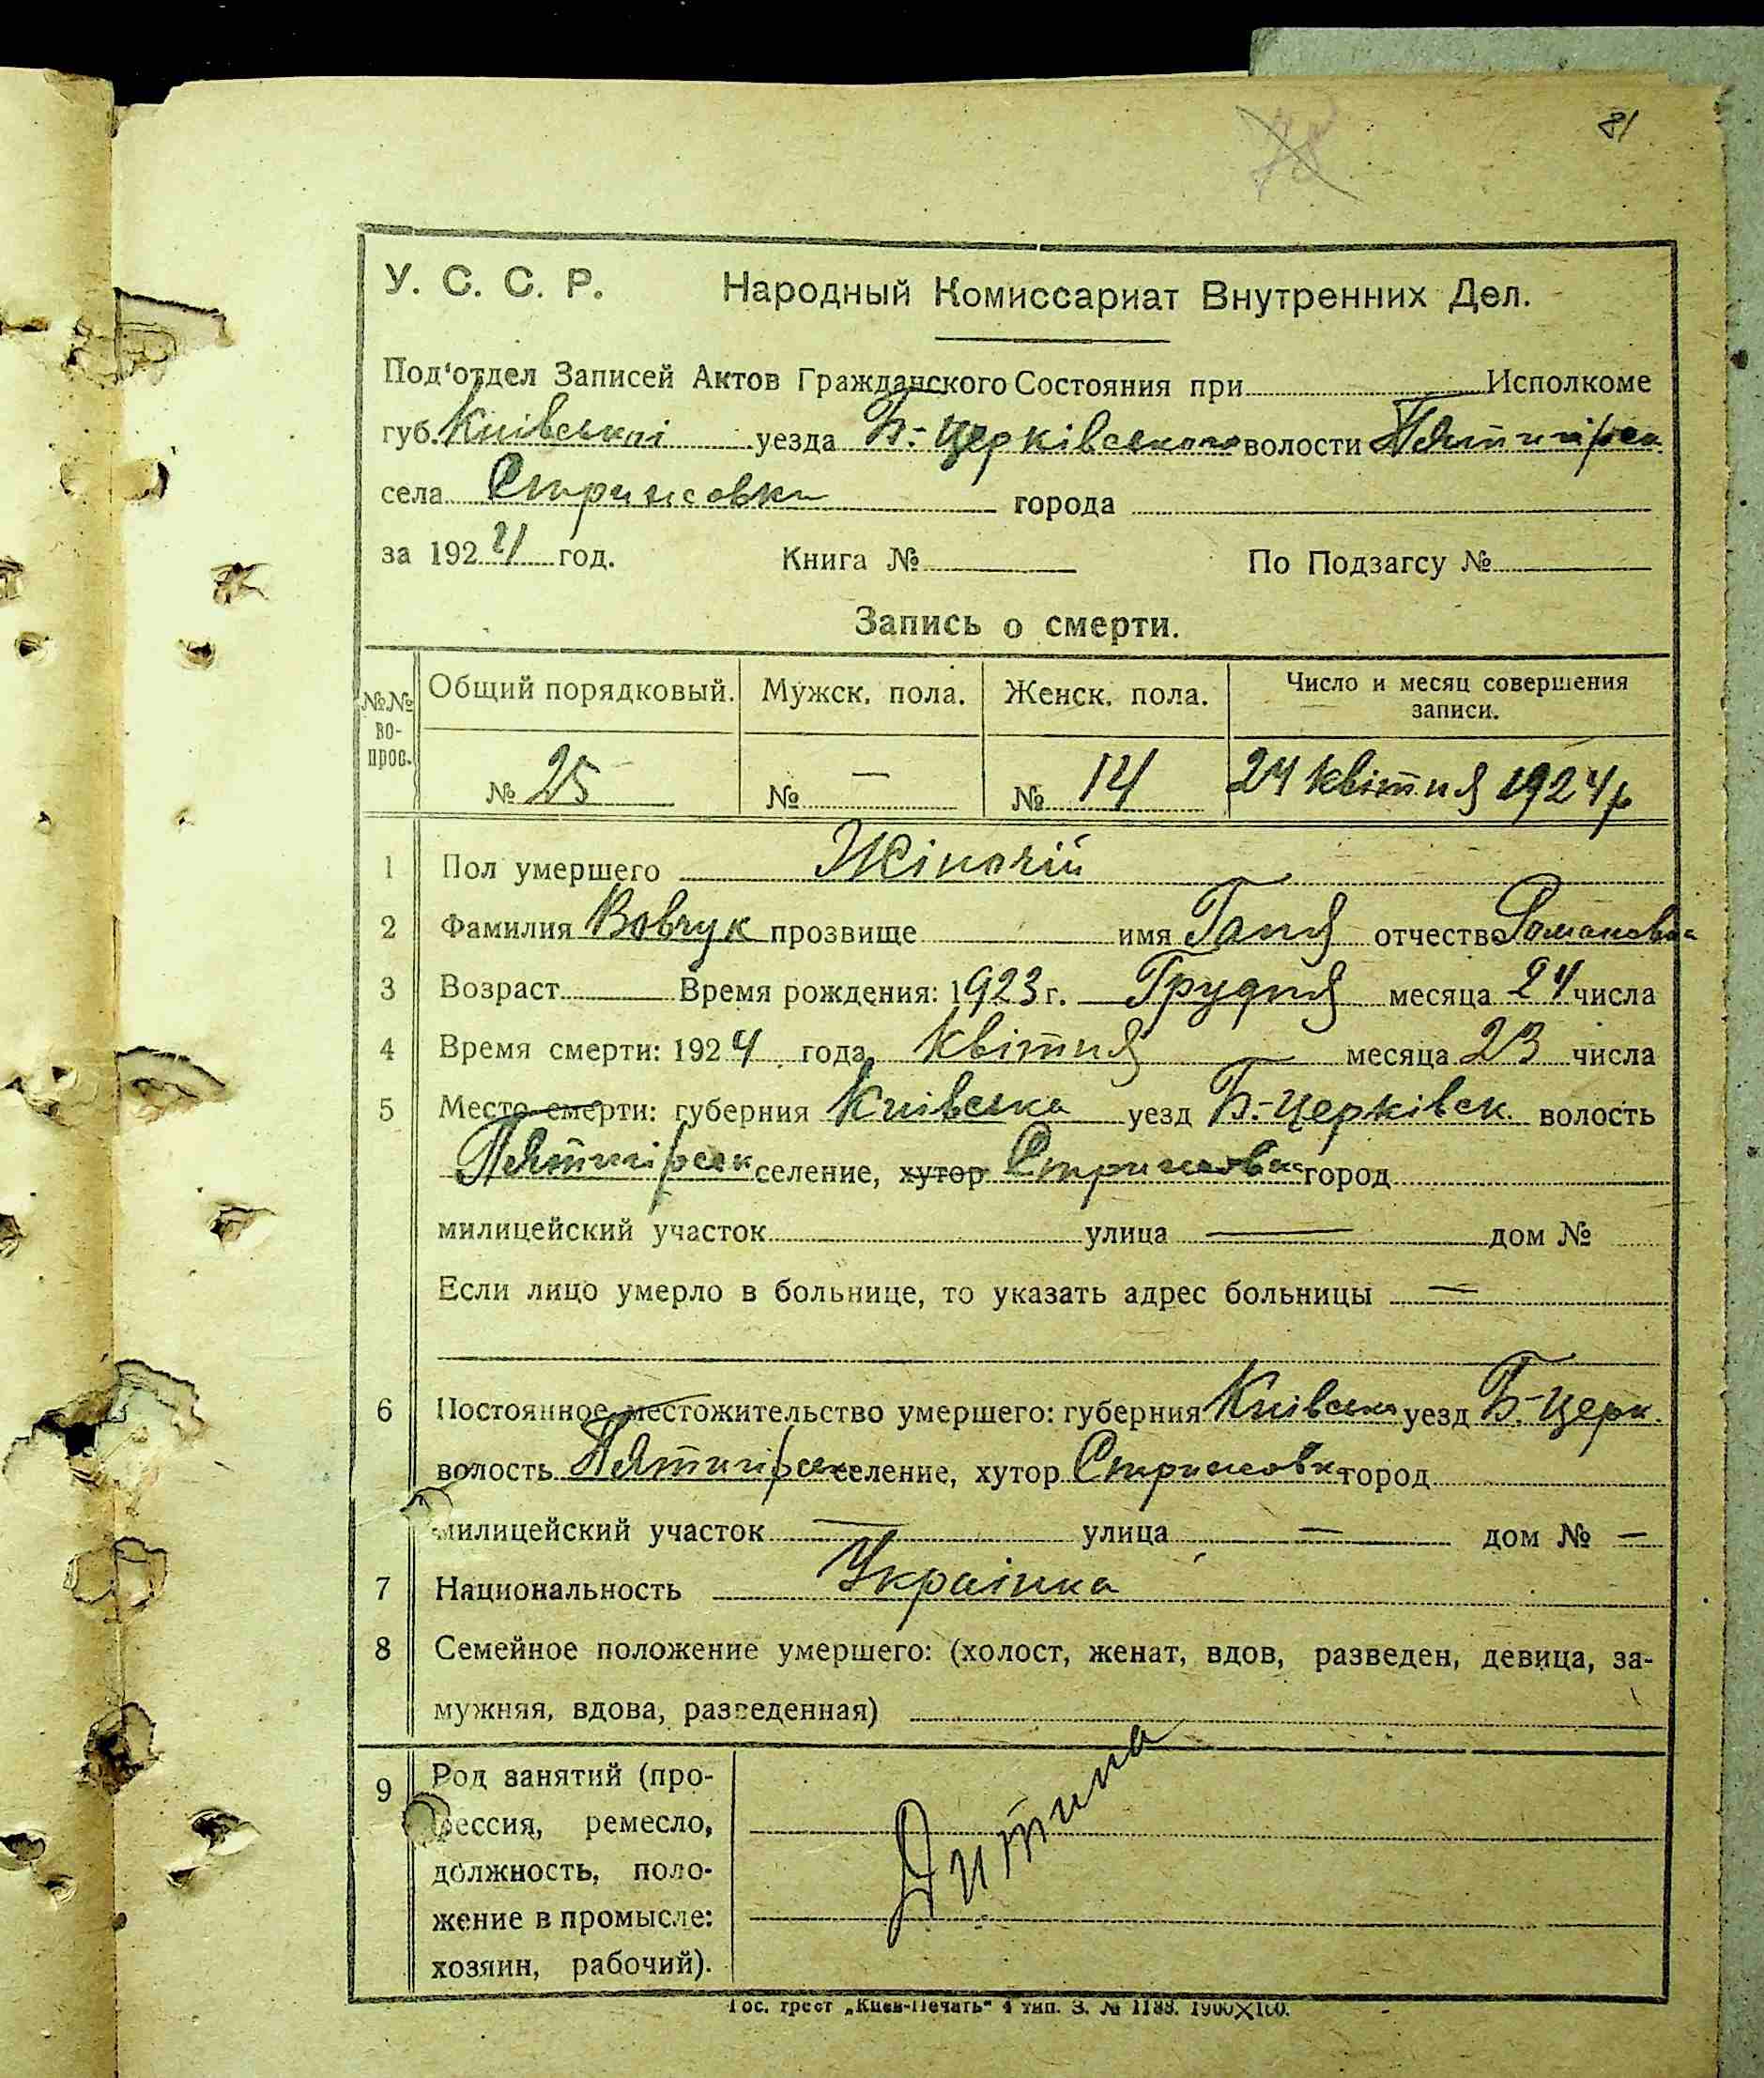 81
У. С. С. Р. Народный Комиссариат Внутренних Дел.
Под'отдел Записей Актов Гражданского Состояния при Исполкоме
губ. Київської уезда Б.-Церківського волости Пятигірськ
села Стрижовки города
за 1924 год. Книга № По Подзагсу №
Запись о смерти.
№№ во- прос. Общий порядковый. Мужск. пола. Женск. пола. Число и месяц совершения записи.
№ 25 № — № 14 24 квітня 1924 р
1 Пол умершего Жіночій
2 Фамилия Вовчук прозвище имя Ганя отчество Романовна
3 Возраст Время рождения: 1923 г. Грудня месяца 24 числа
4 Время смерти: 1924 года, квітня месяца 23 числа
5 Место смерти: губерния Київська уезд Б.-Церківськ. волость
Пятигірськ селение, хутор Стрижовка город
милицейский участок улица — дом №
Если лицо умерло в больнице, то указать адрес больницы —
6 Постоянное местожительство умершего: губерния Київська уезд Б.-Церк.
волость Пятигірськ селение, хутор Стрижовка город
милицейский участок — улица — дом № —
7 Национальность Українка
8 Семейное положение умершего: (холост, женат, вдов, разведен, девица, за-
мужняя, вдова, разведенная)
9 Род занятий (про-
фессия, ремесло,
должность, поло-
жение в промысле:
хозяин, рабочий).
Дитина
Гос. трест „Киев-Печать" 4 тип. З. № 1188. 1900×100.